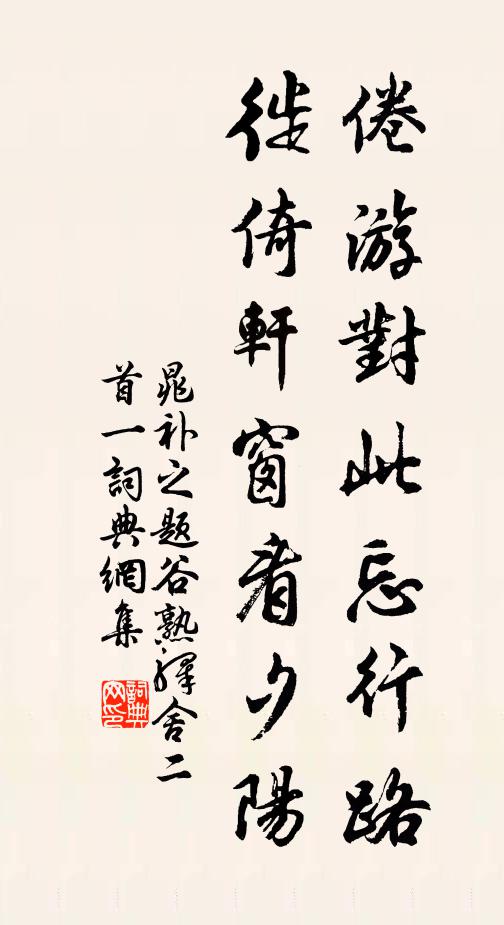 倦游對此忘行路
徙倚軒窗看夕陽
晁补之题谷熟驛舍二
首一詞典網集
詞典
网印